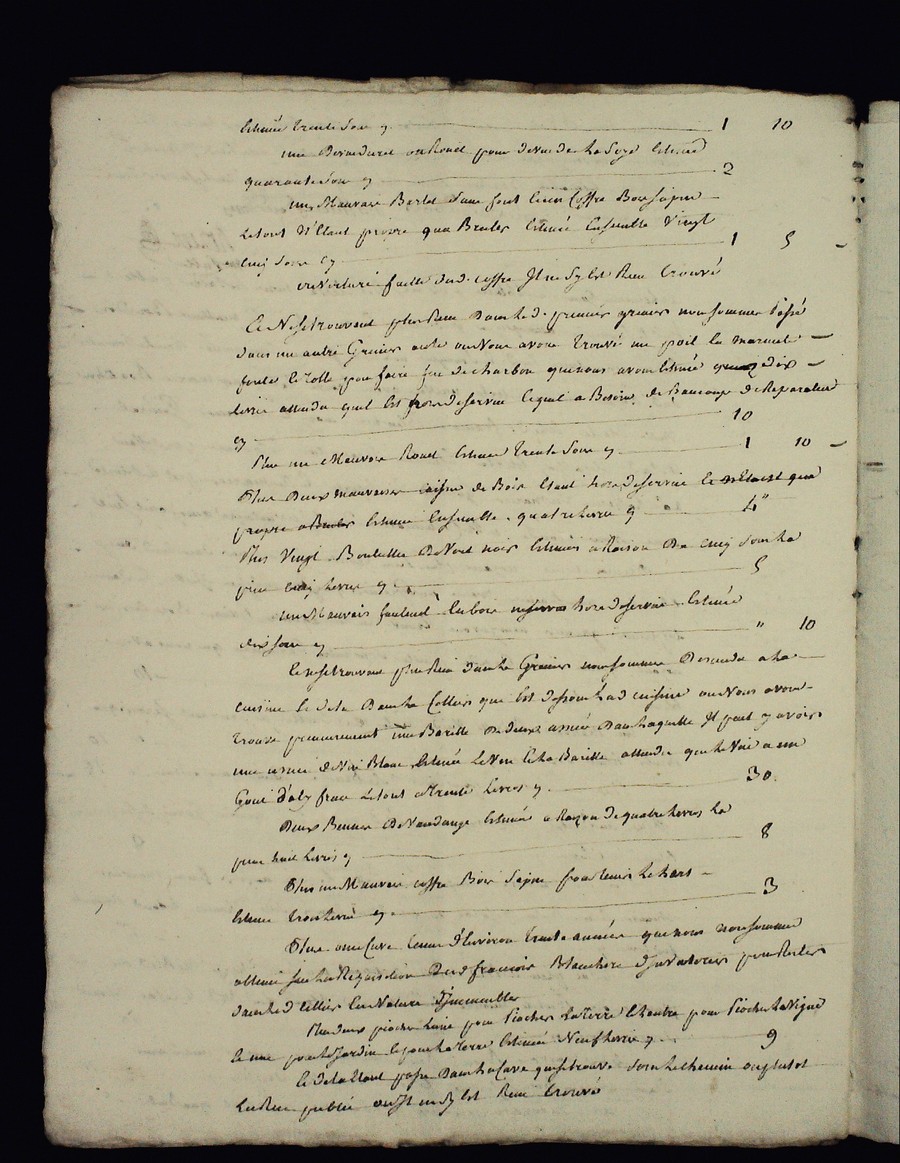 Estimée trente sous cy 1 10
une Devuidoire ou Rouet pour devuider La Soye Estimé
quarante sous cy 2
un Mauvais Berlot sans font Ceiux Coffre Bois sapin
Le tout N'Etant propre qua Bruler Estimé Ensemble Vingt
Cinq sous Cy 1 5
ouverture faitte dud. coffre Il ne sy est Rien trouvé
Et Ne se trouvant plus Rien Dans led. premier grenier nous sommes passé
dans un autre Grenier ou Nous avons trouvé une poil la marmite
forte de tolle pour faire feu de charbon que nous avons Estimée dix
Livres attendu quil Est hors de service Lequel a Besoin de Beaucoup de Reparation
cy 10
Plus un Mauvais Rouet Estimé trente sous cy 1 10
Plus Deux mauvaises caisses de Bois Etant hors de service Et n'étant que
propre a Bruler Estimée Ensemble quatre livres cy 4 "
Plus Vingt Bouteilles De Verre noir Estimées a Raison De Cinq sous La
piece Cinq Livres cy 5
un Mauvais fauteuil En bois hors de service Estimée
dix sous cy " 10
Et ne se trouvant plus Rien dans le Grenier nous sommes Descendu a la
cuisine Et de la Dans le Cellier qui Est dessous lad cuisine ou Nous avons
trouvé premierement une Barille De deux asnée Dans laquelle Il peut y avoir
une asnée de Vin Blanc Estimée Le Vin Et la Barille attendu que le Vin a un
Gout le tout a trente Livres cy 30
Deux Bennes De Vandange Estimée a Raison de quatre Livres La
piece huit Livres cy 8
Plus un Mauvais coffre Bois sapin pour tenir Le hars
Estimé trois Livres cy 3
Plus une Cuve tenue d'Environ trente année que nous nous sommes
abtenu sur la Requisition Dud francois Blanchon pour Rester
dans led Cellier En Nature d'Immeubles
Plus deux pioches Lune pour Piocher La terre Et l'autre pour Piocher La Vigne
Et une pour le Jardin Et pour la terre Estimée Neuf Livres cy 9
Et de la Etant passé Dans la Cave qui se trouve dans le chemin ou plutot
La Rue publié ou Il ne sy Est Rien trouvé